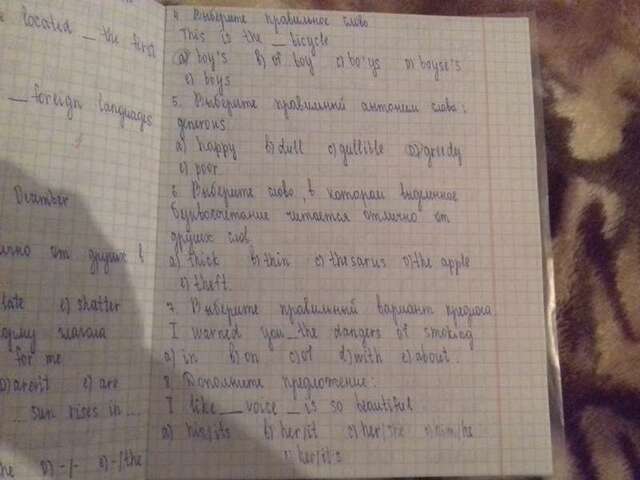 e located _ the first
_ foreign languages
December
ично от других в
late e) shatter
орму глагола
for me
D) aren't e) are
... sun rises in ...
the D) -/- e) -/the
4. Выберите правильное слово
This is the _ bicycle
a) boy's b) of boy c) bo'ys D) boyse's
e) boys
5. Выберите правильный антоним слова:
generous
a) happy b) dull c) gullible D) greedy
e) poor
6. Выберите слово, в котором выделенное
буквосочетание читается отлично от
других слов
a) thick b) thin c) thesarus D) the apple
e) theft
7. Выберите правильный вариант предлога
I warned you _ the dangers of smoking
a) in b) on c) of d) with e) about.
8 Дополните предложение:
I like __ voice _ is so beautiful
a) his/its b) her/it c) her/she D) him/he
e) her/it's